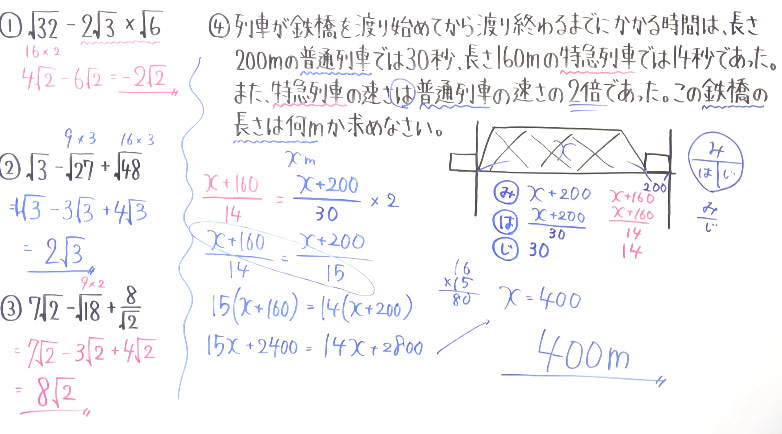 ① √32 - 2√3 × √6
16×2
4√2 - 6√2 = -2√2
9×3 16×3
② √3 - √27 + √48
= √3 - 3√3 + 4√3
= 2√3
9×2
③ 7√2 - √18 + 8/√2
= 7√2 - 3√2 + 4√2
= 8√2
④ 列車が鉄橋を渡り始めてから渡り終わるまでにかかる時間は、長さ
200mの普通列車では30秒、長さ160mの特急列車では14秒であった。
また、特急列車の速さは普通列車の速さの2倍であった。この鉄橋の
長さは何mか求めなさい。
xm
(x+160)/14 = (x+200)/30 × 2
(x+160)/14 = (x+200)/15
15(x+160) = 14(x+200)
15x+2400 = 14x+2800
x
200
み
は じ
み x+200 x+160
は (x+200)/30 (x+160)/14
じ 30 14
み/じ
16
×15
80
x=400
400m